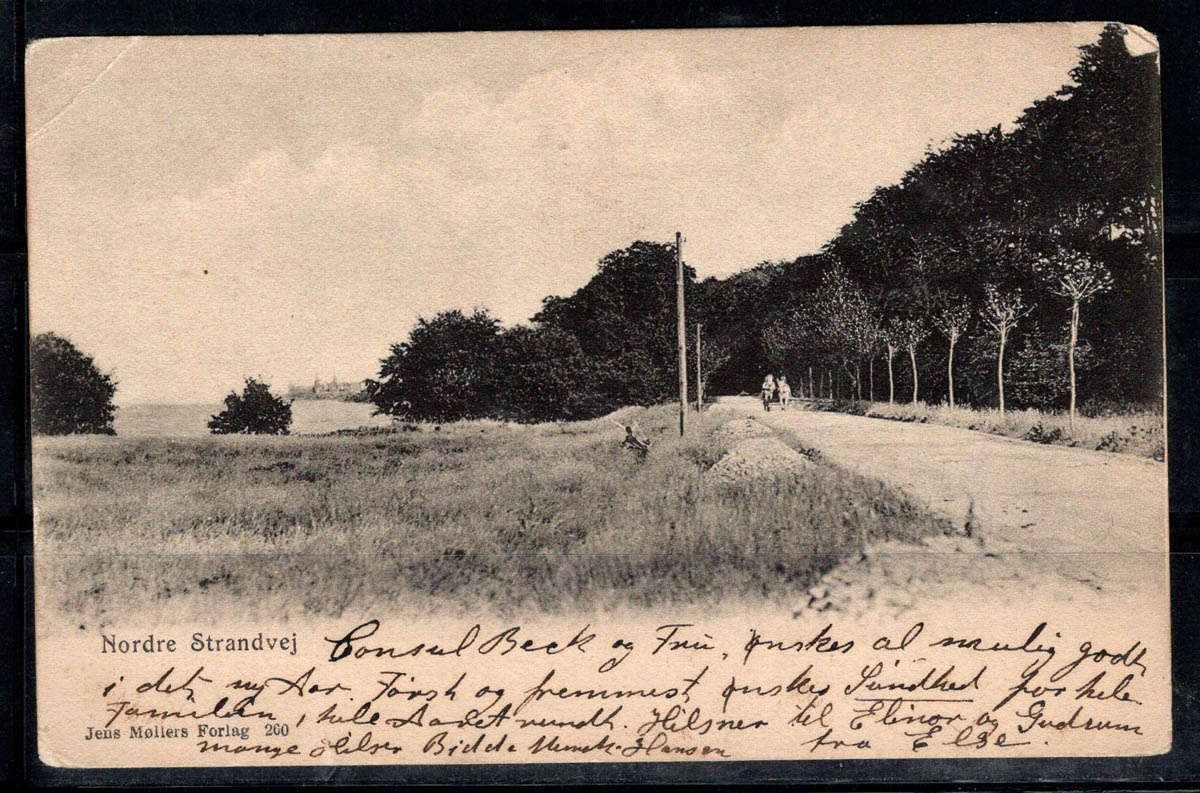 Nordre Strandvej
Consul Beck og Fru, ønskes al mulig godt
i det ny Aar. Først og fremmest ønskes Sundhed for hele
Familien, hele Aaret rundt. Hilsner til Elinor og Gudrum
Jens Møllers Forlag 260
mange Hilsr Munck-Hansen fra Else.